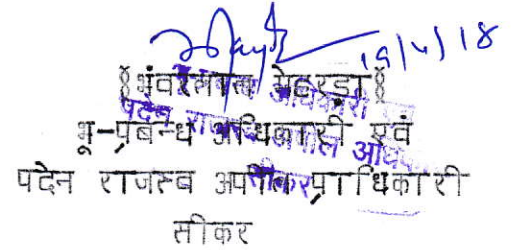 19/4/18
(भंवरलाल मेहरड़ा)
भू-प्रबन्ध अधिकारी एवं
पदेन राजस्व अपील प्राधिकारी
सीकर